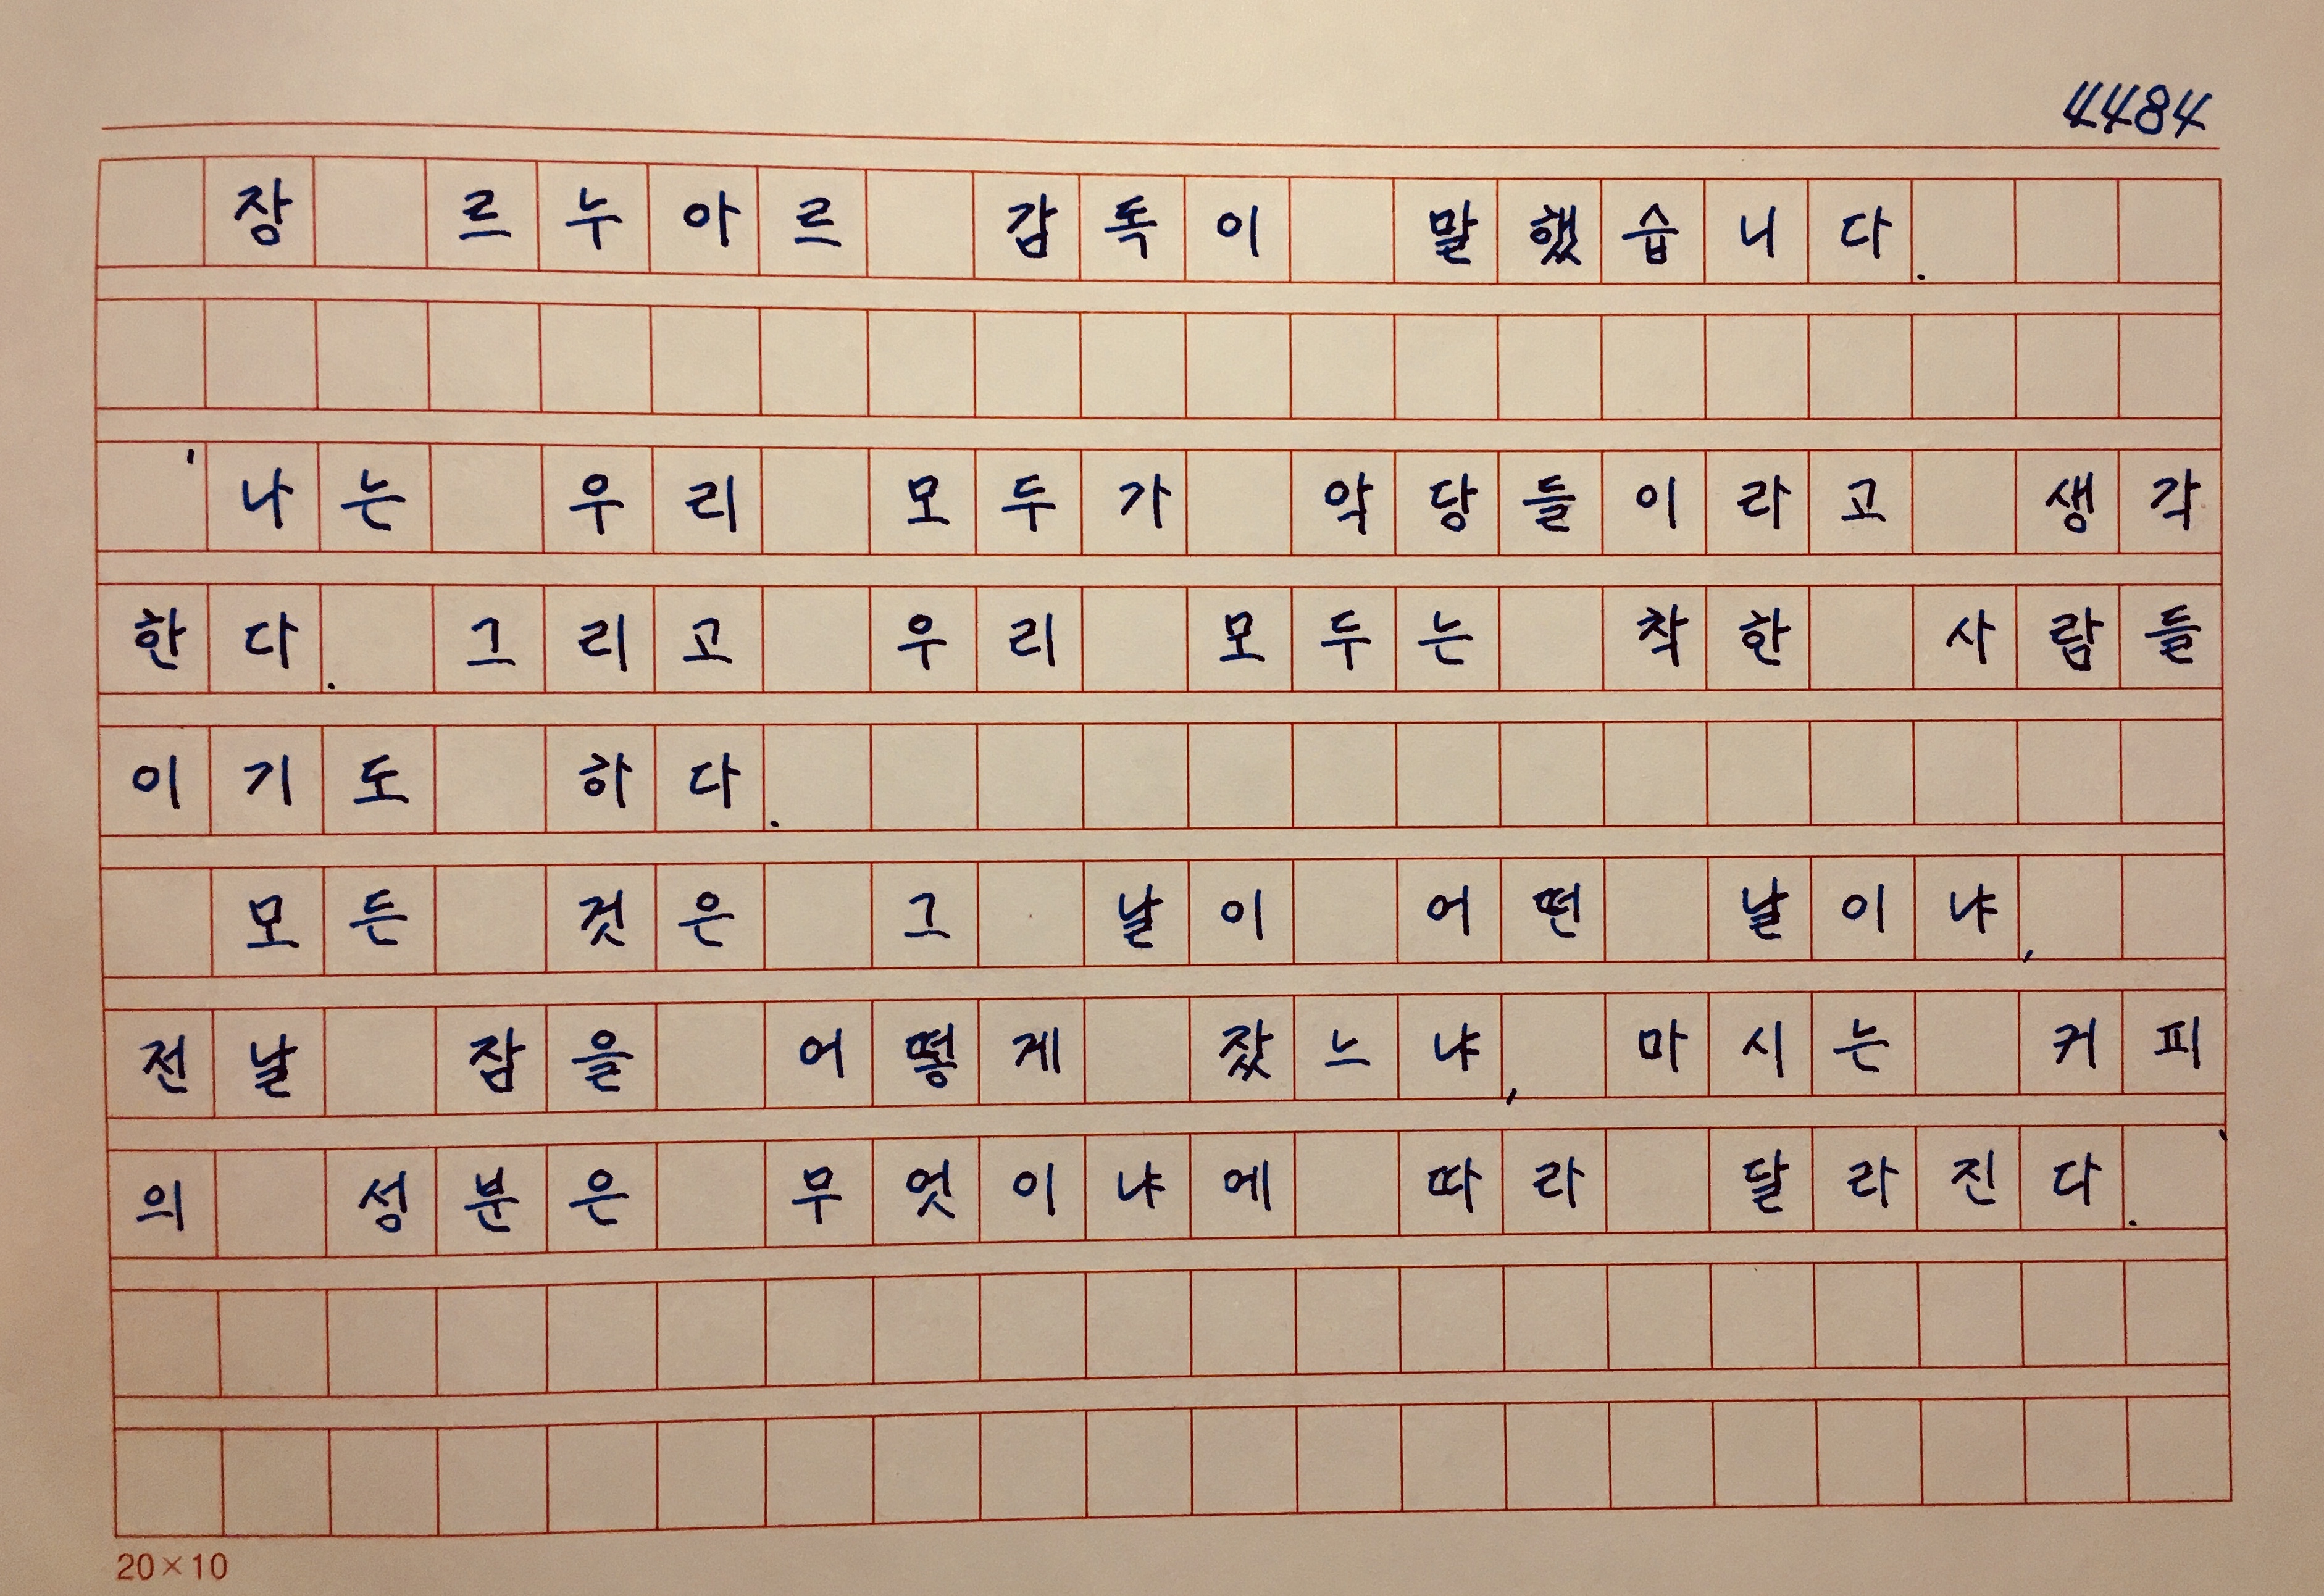 4484
장 르누아르 감독이 말했습니다.
'나는 우리 모두가 악당들이라고 생각
한다. 그리고 우리 모두는 착한 사람들
이기도 하다.
모든 것은 그 날이 어떤 날이냐,
전날 잠을 어떻게 잤느냐, 마시는 커피
의 성분은 무엇이냐에 따라 달라진다.'
20×10